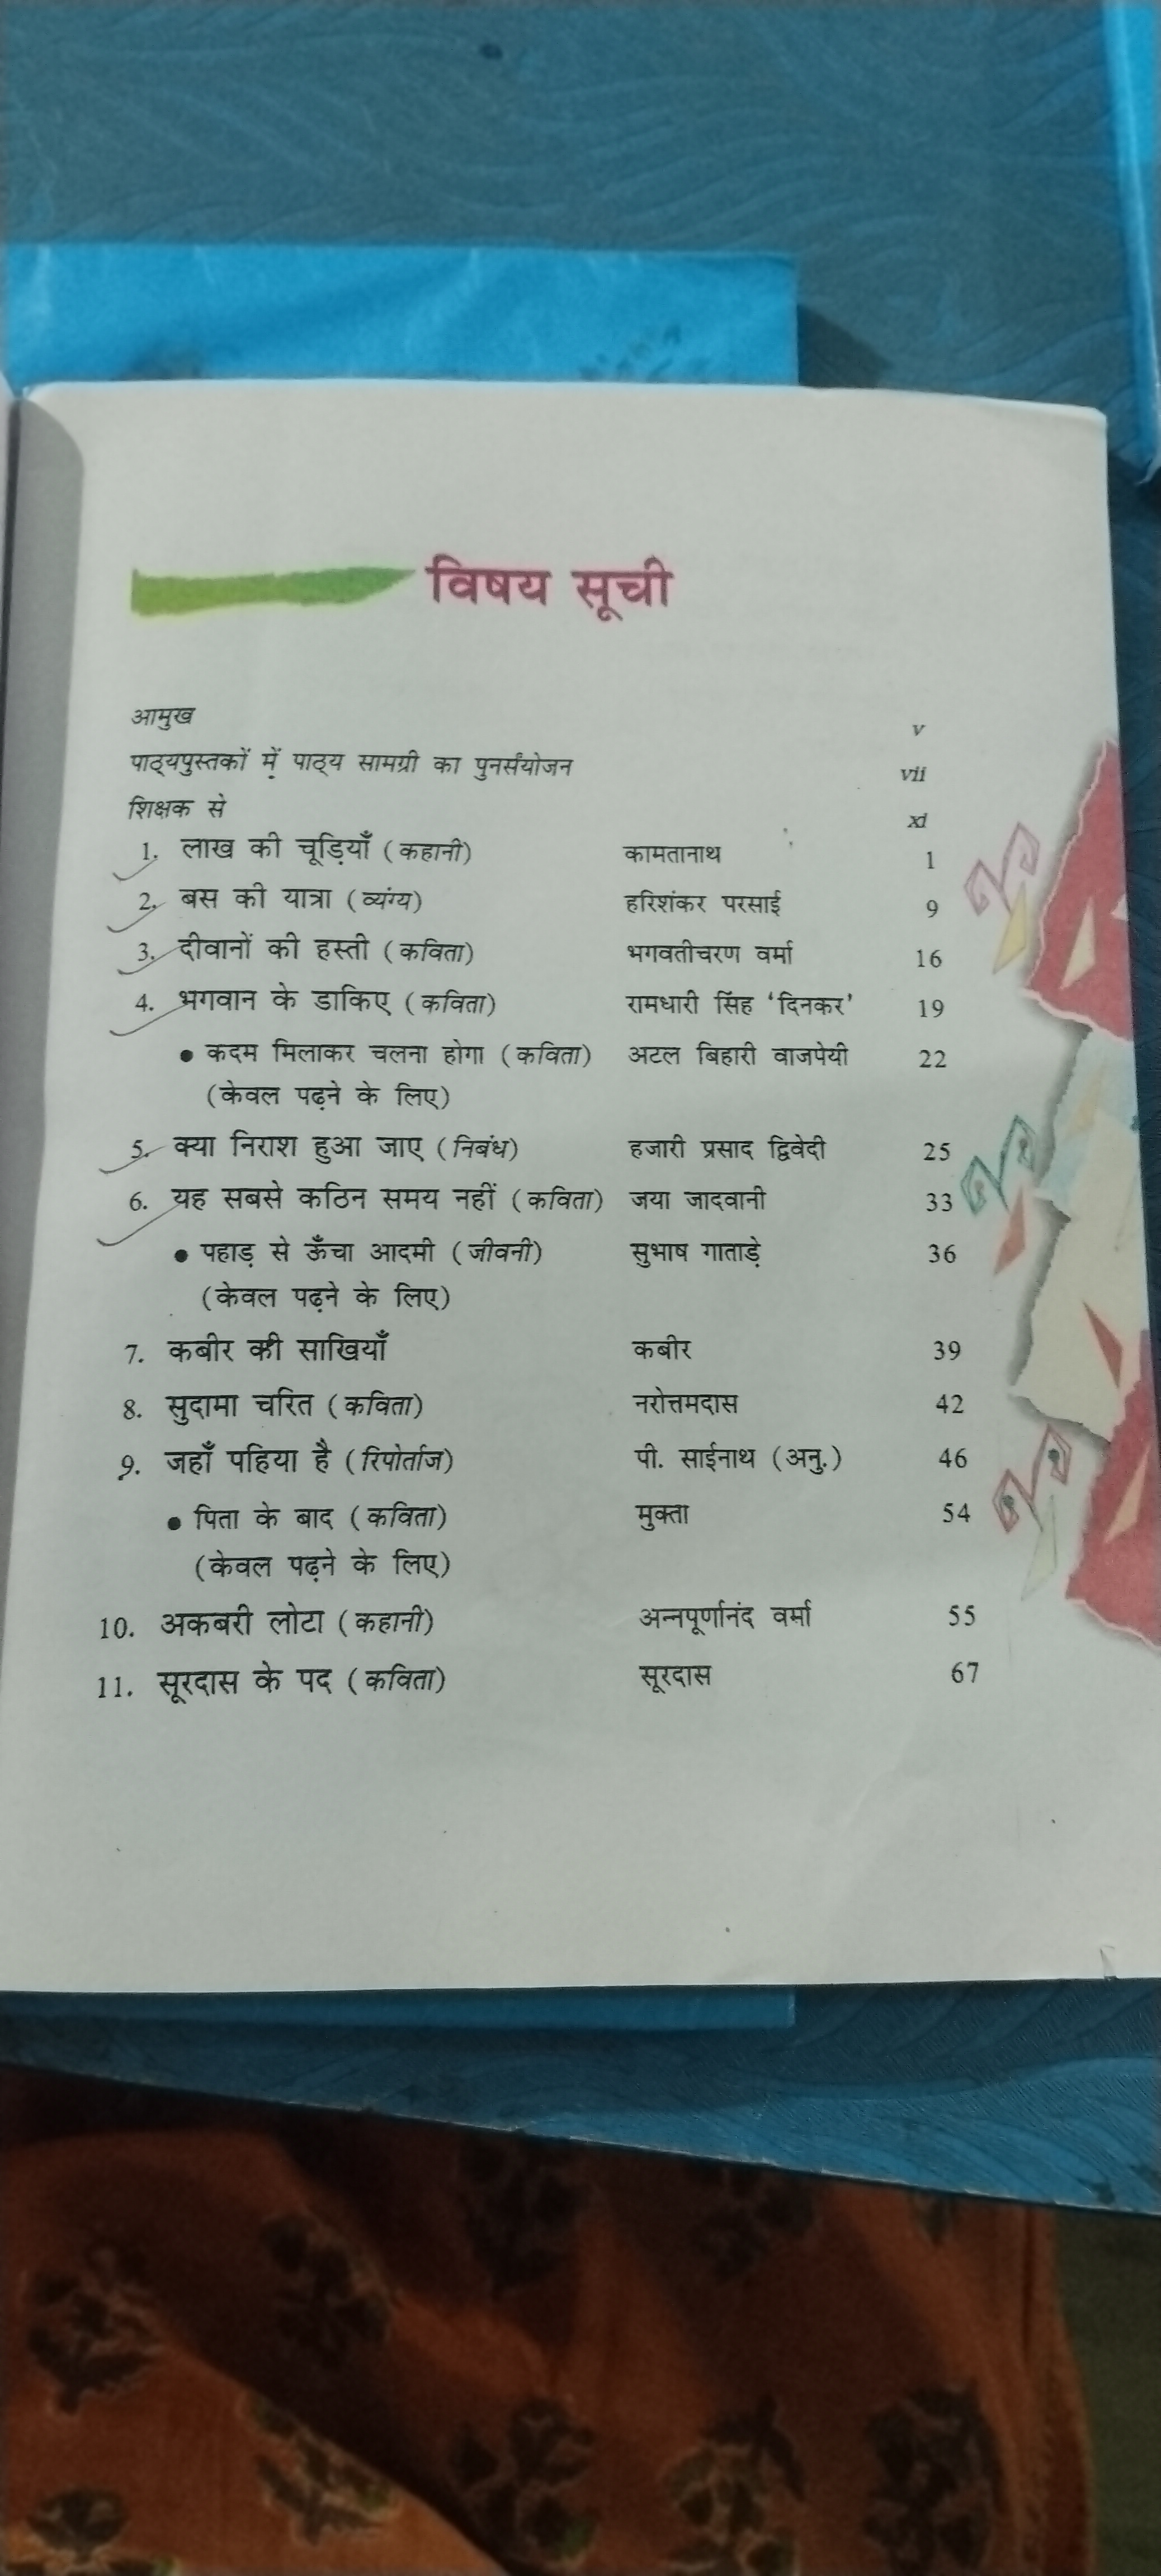 विषय सूची
आमुख v
पाठ्यपुस्तकों में पाठ्य सामग्री का पुनर्संयोजन vii
शिक्षक से xi
1. लाख की चूड़ियाँ (कहानी) कामतानाथ 1
2. बस की यात्रा (व्यंग्य) हरिशंकर परसाई 9
3. दीवानों की हस्ती (कविता) भगवतीचरण वर्मा 16
4. भगवान के डाकिए (कविता) रामधारी सिंह 'दिनकर' 19
• कदम मिलाकर चलना होगा (कविता) अटल बिहारी वाजपेयी 22
(केवल पढ़ने के लिए)
5. क्या निराश हुआ जाए (निबंध) हजारी प्रसाद द्विवेदी 25
6. यह सबसे कठिन समय नहीं (कविता) जया जादवानी 33
• पहाड़ से ऊँचा आदमी (जीवनी) सुभाष गाताड़े 36
(केवल पढ़ने के लिए)
7. कबीर की साखियाँ कबीर 39
8. सुदामा चरित (कविता) नरोत्तमदास 42
9. जहाँ पहिया है (रिपोर्ताज) पी. साईनाथ (अनु.) 46
• पिता के बाद (कविता) मुक्ता 54
(केवल पढ़ने के लिए)
10. अकबरी लोटा (कहानी) अन्नपूर्णानंद वर्मा 55
11. सूरदास के पद (कविता) सूरदास 67